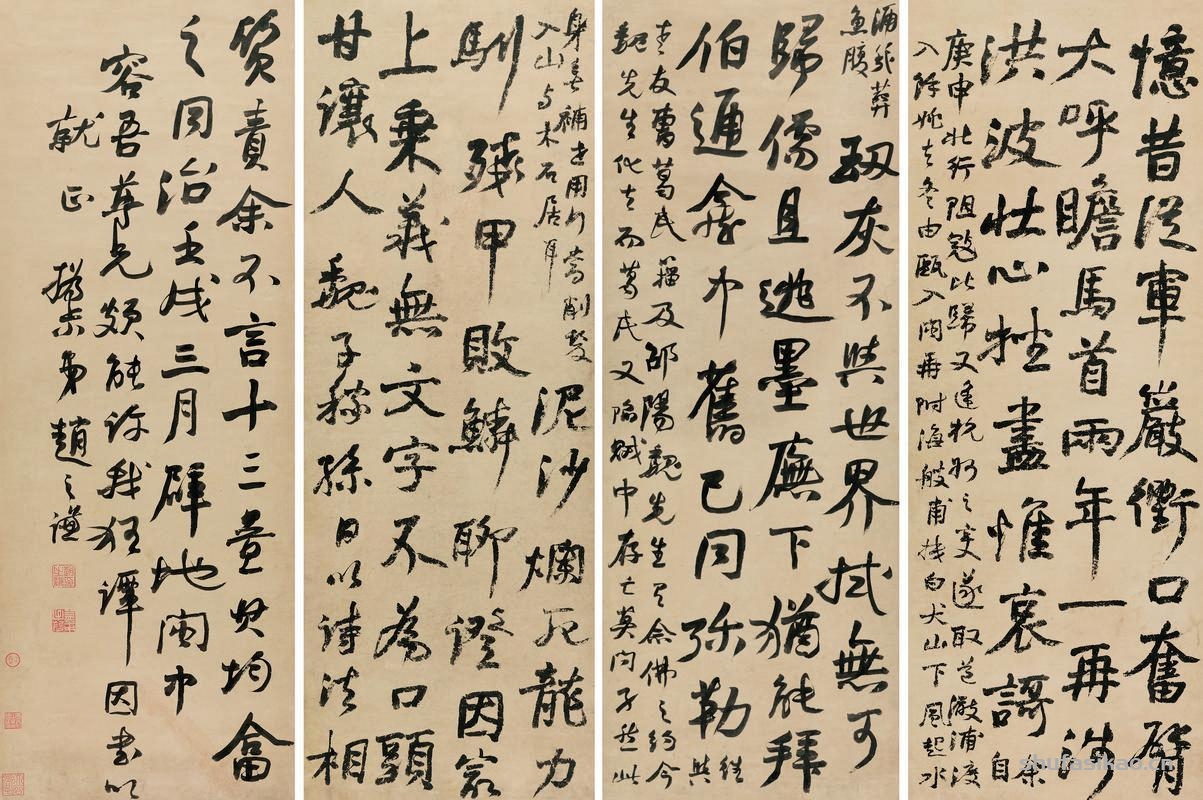 憶昔從軍嚴衢口奮臂
大呼瞻馬首兩年一再涉
洪波壯心挫盡惟哀謌余自
庚申北行阻寇比歸又逢杭州之變遂取道澉浦渡
入餘姚去冬由甌入閩再附海艘甫抵白犬山下風起水
湧幾葬
魚腹
劫灰不與世界拭無可
歸儒且逃墨廡下猶能拜
伯通龕中舊已同弥勒往與
老友曹葛民籀及邵陽魏先生有念佛之約今
魏先生化去而葛民又陷賊中存亡莫問予愁此
身無補世用行當削髮
入山与木石居耳
泥沙爛死龍力
馴殘甲敗鱗聊證因最
上乘義無文字不為口頭
甘讓人魏子稼孫日以詩法相
質責余不言十三疊其均畣
之同治壬戌三月辟地閩中
容吾尊兄頗能諒我狂譚因書以
就正撝叔弟趙之謙
shufasikao.cn